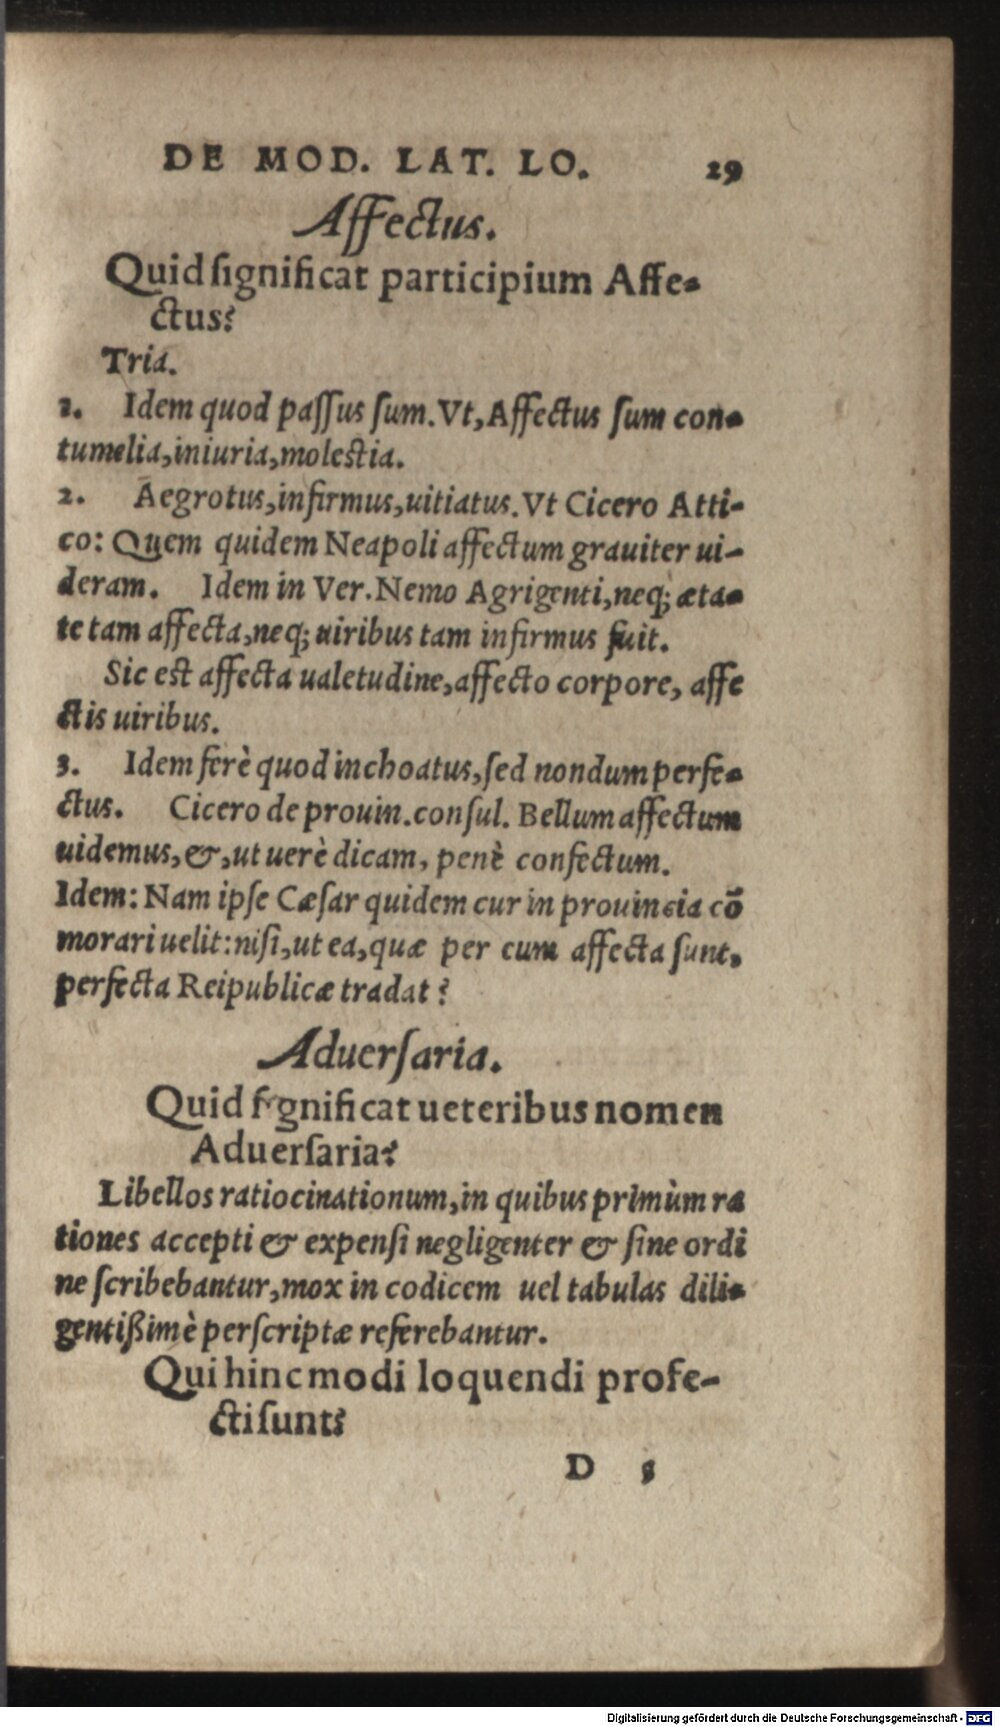 DE MOD. LAT. LO. 29
Affectus.
Quid ſignificat participium Affe-
ctus?
Tria.
1. Idem quod paſſus ſum. Vt, Affectus ſum con-
tumelia, iniuria, moleſtia.
2. Aegrotus, infirmus, uitiatus. Vt Cicero Atti-
co: Quem quidem Neapoli affectum grauiter ui-
deram. Idem in Ver. Nemo Agrigenti, neq; æta-
te tam affecta, neq; uiribus tam infirmus fuit.
Sic eſt affecta ualetudine, affecto corpore, affe
ctis uiribus.
3. Idem ferè quod inchoatus, ſed nondum perfe-
ctus. Cicero de prouin. conſul. Bellum affectum
uidemus, &, ut uerè dicam, penè confectum.
Idem: Nam ipſe Cæſar quidem cur in prouincia cõ
morari uelit: niſi, ut ea, quæ per eum affecta ſunt,
perfecta Reipublicæ tradat?
Aduerſaria.
Quid ſignificat ueteribus nomen
Aduerſaria?
Libellos ratiocinationum, in quibus primùm ra
tiones accepti & expenſi negligenter & ſine ordi
ne ſcribebantur, mox in codicem uel tabulas dili-
gentißimè perſcriptæ referebantur.
Qui hinc modi loquendi profe-
cti ſunt?
D 5
Digitalisierung gefördert durch die Deutsche Forschungsgemeinschaft - DFG